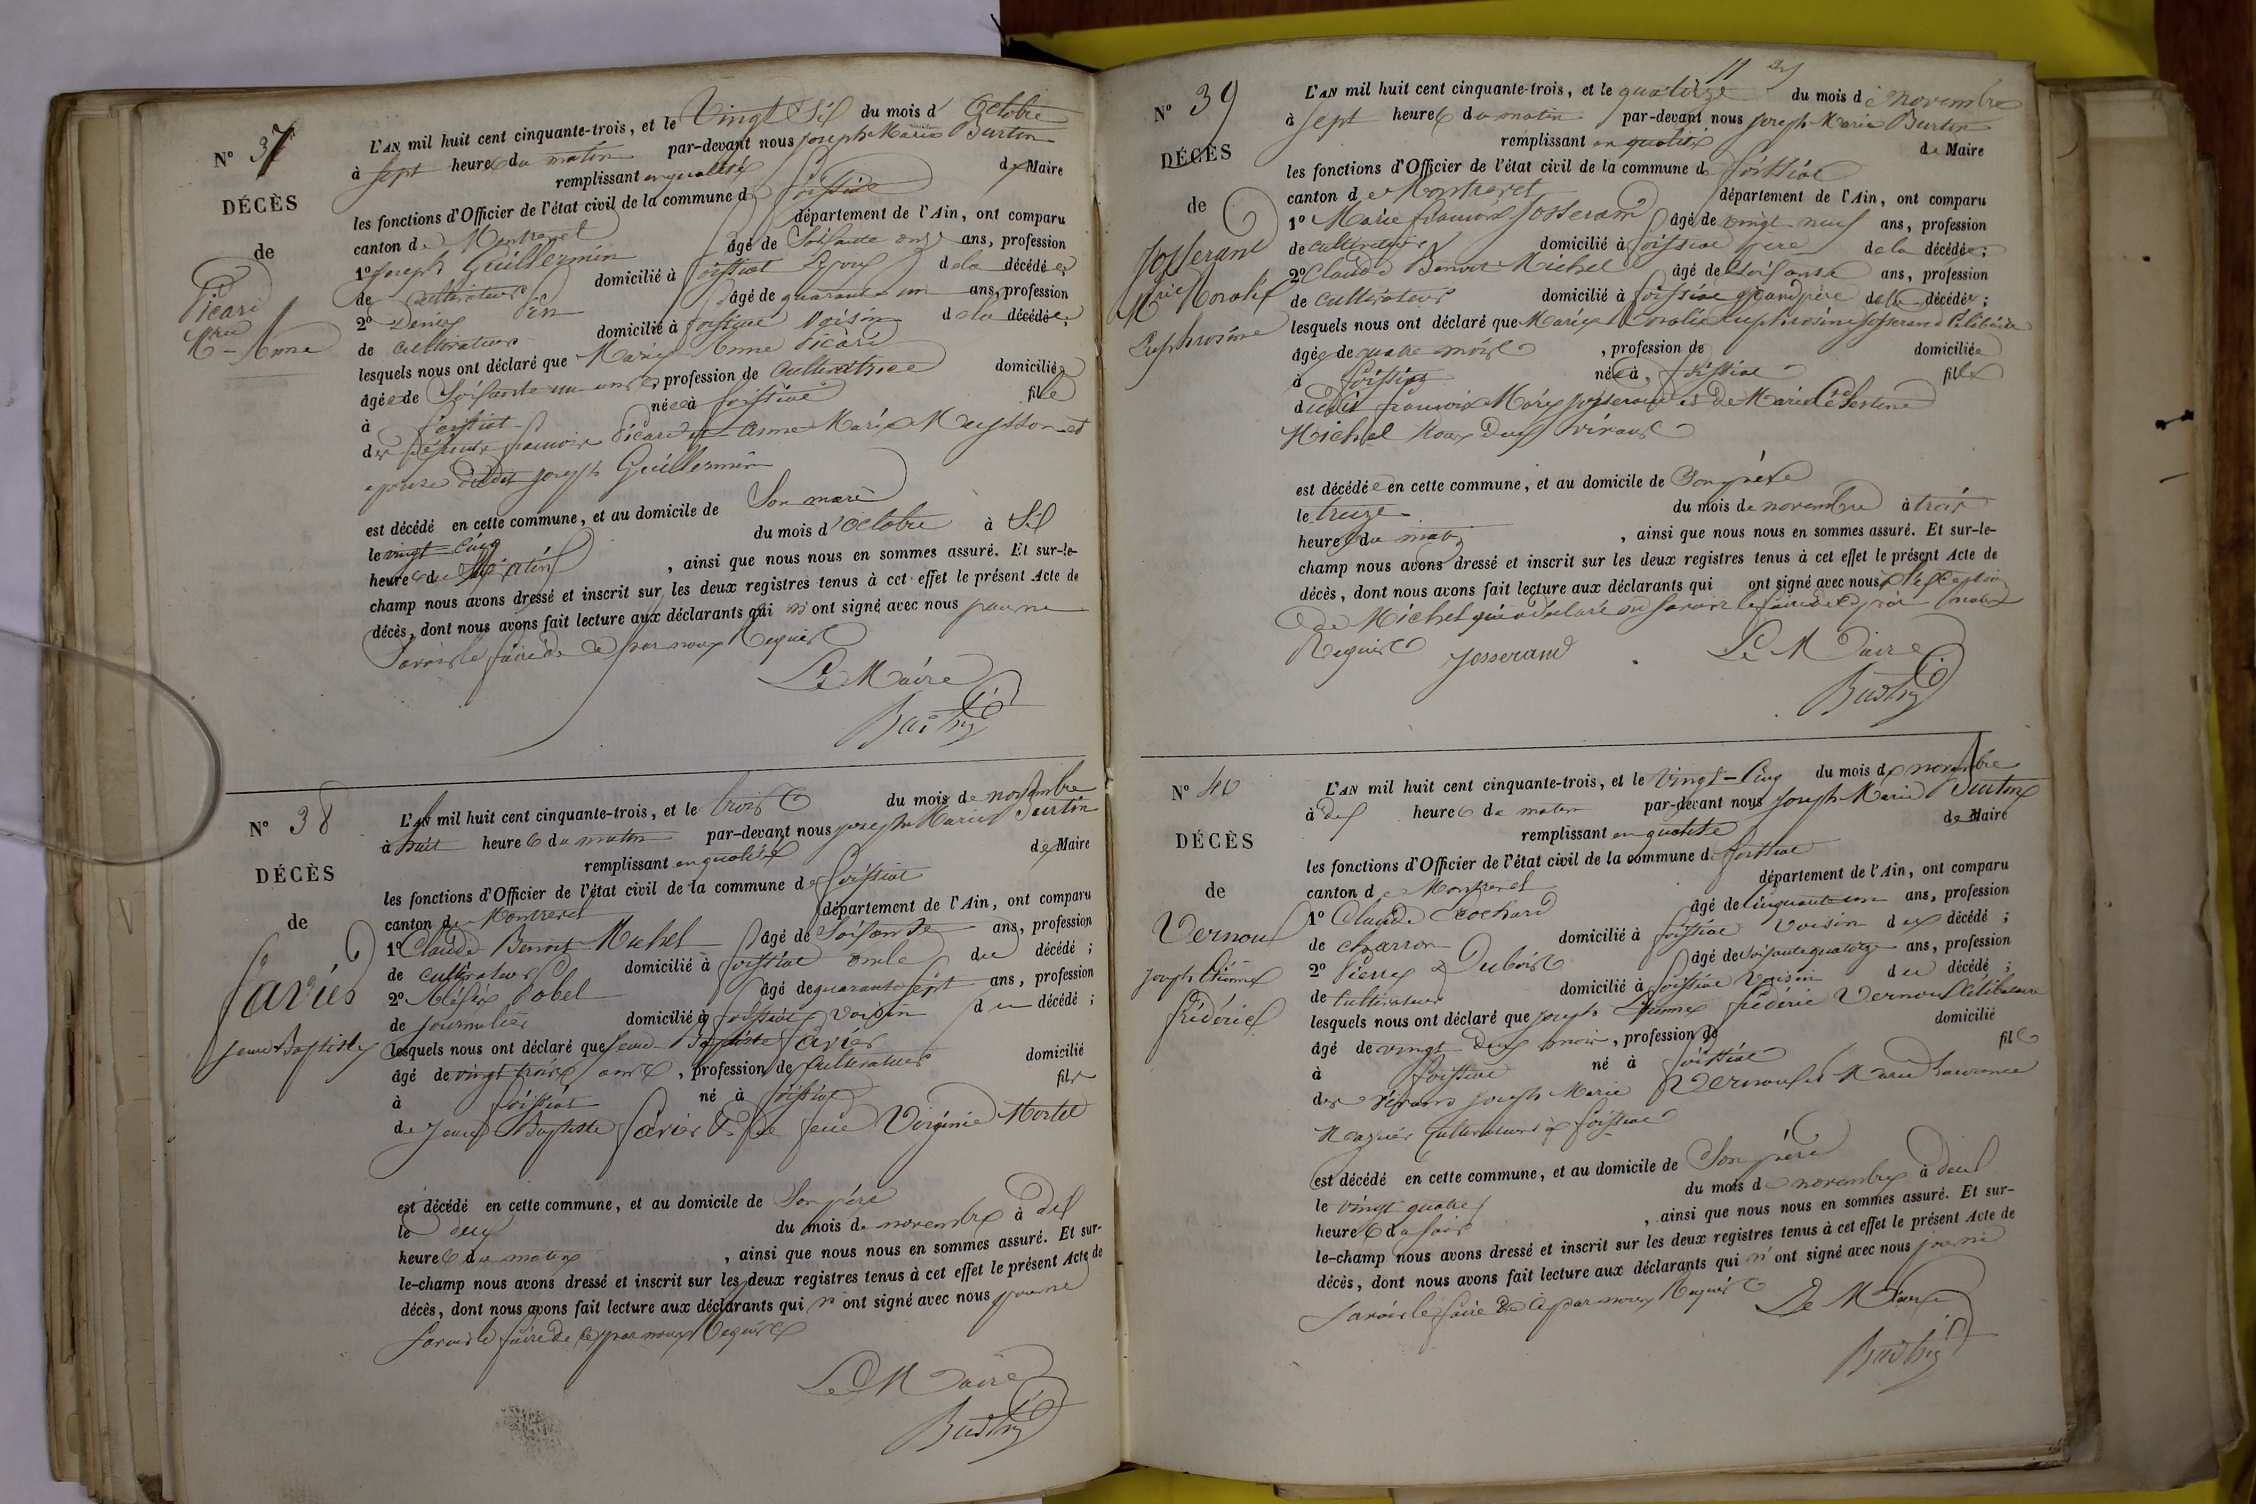 N° 37
DÉCÈS
de
Picard
Mrie Anne
L'AN mil huit cent cinquante-trois, et le Vingt Six du mois d'Octobre
à sept heures du matin par-devant nous Joseph Marie Burtin
remplissant en qualité de Maire
les fonctions d'Officier de l'état civil de la commune de Foissiat
canton de Montrevel département de l'Ain, ont comparu
1° Joseph Guillermin âgé de Soixante onze ans, profession
de cultivateur domicilié à Foissiat Epoux de la décédée
2° Denis âgé de quarante un ans, profession
de cultivateur domicilié à Foissiat Voisin de la décédée
lesquels nous ont déclaré que Marie Anne Picard
âgée de Soixante un ans profession de Cultivatrice domiciliée
à Foissiat née à Foissiat fille
des défunts françois Picard et Anne Marie Maysson et
épouse dudit Joseph Guillermin
est décédé en cette commune, et au domicile de Son mari
le vingt-cinq du mois d'Octobre à Six
heures du matin, ainsi que nous nous en sommes assuré. Et sur-le-
champ nous avons dressé et inscrit sur les deux registres tenus à cet effet le présent Acte de
décès, dont nous avons fait lecture aux déclarants qui n'ont signé avec nous pour ne
Savoir le faire de ce par nous Requis
Le Maire
Burtin
N° 38
DÉCÈS
de
favier
Jean Baptiste
L'AN mil huit cent cinquante-trois, et le trois du mois de novembre
à huit heures du matin par-devant nous Joseph Marie Burtin
remplissant en qualité de Maire
les fonctions d'Officier de l'état civil de la commune de Foissiat
canton de Montrevel département de l'Ain, ont comparu
1° Claude Benoit Michel âgé de Soixante ans, profession
de cultivateur domicilié à Foissiat oncle du décédé ;
2° Alexis Pobel âgé de quarante sept ans, profession
de journalier domicilié à Foissiat Voisin du décédé ;
lesquels nous ont déclaré que Jean Baptiste favier
âgé de vingt trois ans, profession de Cultivateur domicilié
à Foissiat né à Foissiat fils
de Jean Baptiste favier et de feue Virginie Mortel
est décédé en cette commune, et au domicile de Son père
le deux du mois de novembre à dix
heures du matin, ainsi que nous nous en sommes assuré. Et sur-
le-champ nous avons dressé et inscrit sur les deux registres tenus à cet effet le présent Acte de
décès, dont nous avons fait lecture aux déclarants qui n'ont signé avec nous pour ne
Savoir le faire de ce par nous Requis
Le Maire
Burtin
11
N° 39
DÉCÈS
de
Josserand
Mrie Coralie
Euphrosine
L'AN mil huit cent cinquante-trois, et le quatorze du mois de novembre
à sept heures du matin par-devant nous Joseph Marie Burtin
remplissant en qualité de Maire
les fonctions d'Officier de l'état civil de la commune de Foissiat
canton de Montrevel département de l'Ain, ont comparu
1° Marie françois Josserand âgé de vingt neuf ans, profession
de cultivateur domicilié à Foissiat père de la décédée ;
2° Claude Benoit Michel âgé de Soixante ans, profession
de cultivateur domicilié à Foissiat grand père de la décédée ;
lesquels nous ont déclaré que Marie Coralie Euphrosine Josserand Célibataire
âgée de quatre mois, profession de domiciliée
à Foissiat née à Foissiat fille
dudit françois Marie Josserand et de Marie Célestine
Michel tous deux vivants
est décédée en cette commune, et au domicile de Son père
le treize du mois de novembre à trois
heures du matin, ainsi que nous nous en sommes assuré. Et sur-le-
champ nous avons dressé et inscrit sur les deux registres tenus à cet effet le présent Acte de
décès, dont nous avons fait lecture aux déclarants qui ont signé avec nous à l'exception
de Michel qui a déclaré ne savoir le faire de ce par nous
Requis Josserand Le Maire
Burtin
N° 40
DÉCÈS
de
Vernoux
joseph Etienne
frédéric
L'AN mil huit cent cinquante-trois, et le Vingt-Cinq du mois de novembre
à dix heures du matin par-devant nous Joseph Marie Burtin
remplissant en qualité de Maire
les fonctions d'Officier de l'état civil de la commune de Foissiat
canton de Montrevel département de l'Ain, ont comparu
1° Claude Cochard âgé de Cinquante ans, profession
de charron domicilié à Foissiat Voisin du décédé ;
2° Pierre Dubois âgé de Soixante quatorze ans, profession
de Cultivateur domicilié à Foissiat Voisin du décédé ;
lesquels nous ont déclaré que Joseph Etienne frédéric Vernoux Célibataire
âgé de vingt deux mois, profession de domicilié
à Foissiat né à Foissiat fils
des vivants Joseph Marie Vernoux et Marie Laurence
Cultivateurs à Foissiat
est décédé en cette commune, et au domicile de Son père
le vingt quatre du mois de novembre à deux
heures du soir, ainsi que nous nous en sommes assuré. Et sur-
le-champ nous avons dressé et inscrit sur les deux registres tenus à cet effet le présent Acte de
décès, dont nous avons fait lecture aux déclarants qui n'ont signé avec nous pour ne
Savoir le faire de ce par nous Requis Le Maire
Burtin